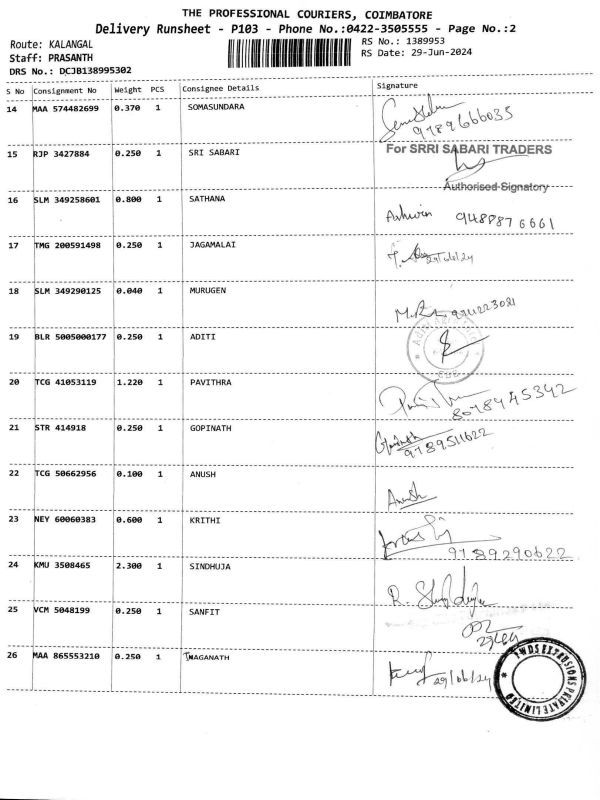 THE PROFESSIONAL COURIERS, COIMBATORE
Delivery Runsheet - P103 - Phone No.:0422-3505555 - Page No.:2
Route: KALANGAL
RS No.: 1389953
Staff: PRASANTH
RS Date: 29-Jun-2024
DRS No.: DCJB138995302
S No Consignment No Weight PCS Consignee Details Signature
14 MAA 574482699 0.370 1 SOMASUNDARA
9789666035
15 RJP 3427884 0.250 1 SRI SABARI For SRRI SABARI TRADERS
Authorised Signatory
16 SLM 349258601 0.800 1 SATHANA
Ashwin 9488876661
17 TMG 200591498 0.250 1 JAGAMALAI
18 SLM 349290125 0.040 1 MURUGEN
19 BLR 5005000177 0.250 1 ADITI
20 TCG 41053119 1.220 1 PAVITHRA
8078445342
21 STR 414918 0.250 1 GOPINATH
Gopinath
9789511622
22 TCG 50662956 0.100 1 ANUSH
Anush
23 NEY 60060383 0.600 1 KRITHI
9789290622
24 KMU 3508465 2.300 1 SINDHUJA
25 VCM 5048199 0.250 1 SANFIT
26 MAA 865553210 0.250 1 NAGANATH
29/06/24
TWDS EXTRUSIONS PRIVATE LIMITED